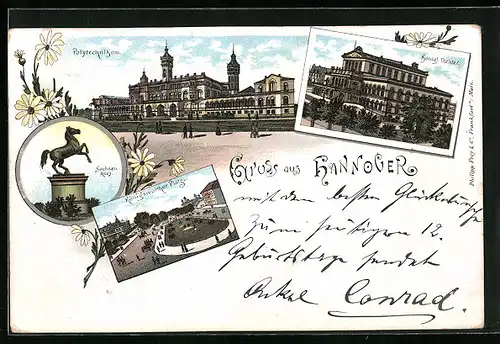 Polytechnikum.
Königl. Theater.
Sachsen
Ross
Königsworther Platz.
GRUSS AUS HANNOVER
Philipp Frey & Co, Frankfurt a/Main.
mit den besten Glückwünschen
zum heutigen 12.
Geburtstage sendet
Onkel Conrad.